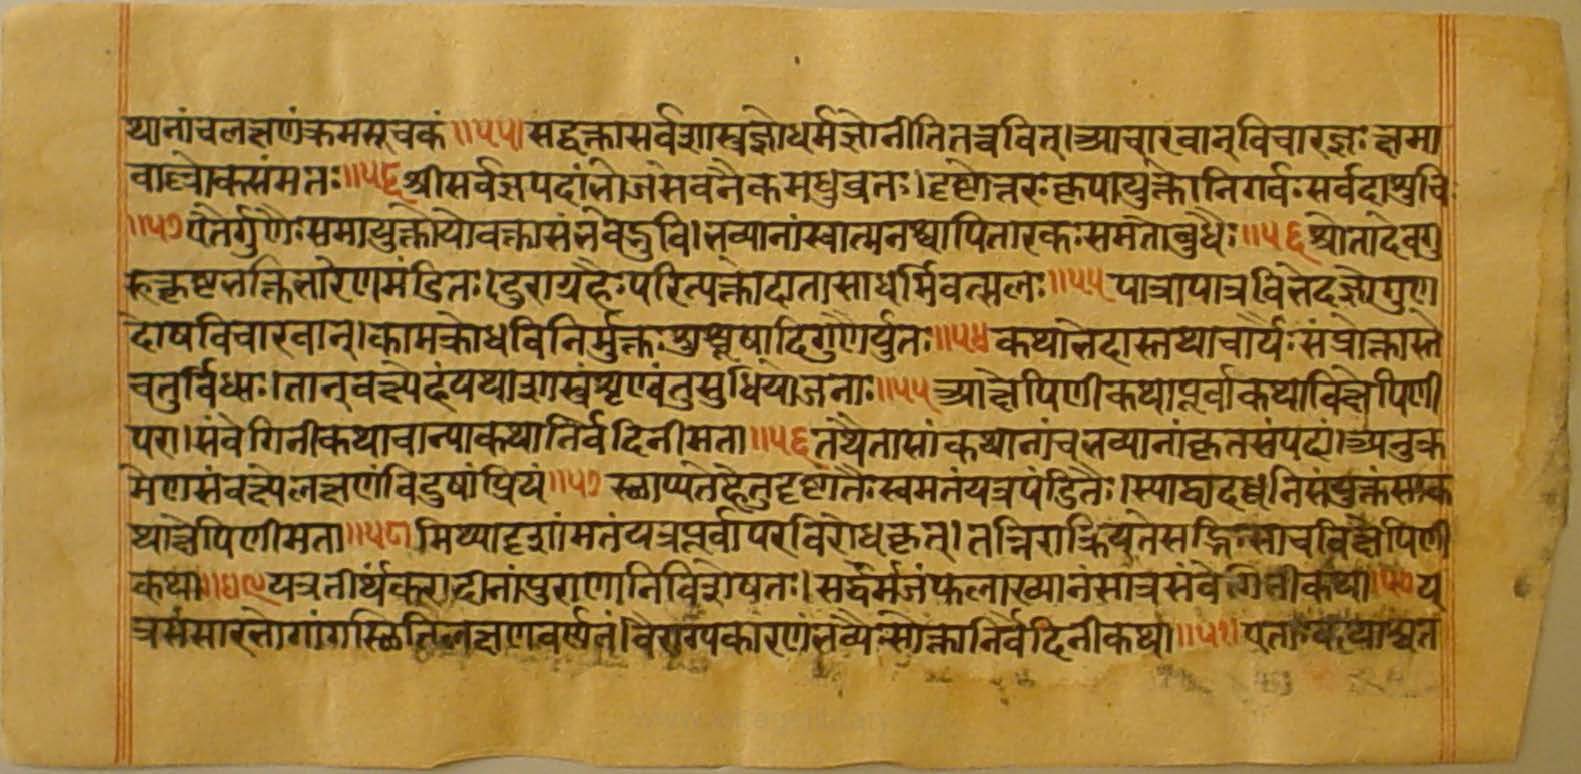 थानांचलक्षणंक्रमसूचकं॥५५॥सद्वक्तासर्वशास्त्रज्ञोधर्मज्ञोनीतितत्त्ववित्।आचारवान्विचारज्ञःक्षमा
वाण्लोकसंमतः॥५६श्रीसर्वज्ञपदांभोजसेवनैकमधुव्रतः।दृष्टोत्तरःकृपायुक्तोनिगर्वःसर्वदाशुचि
॥५७एतैर्गुणैःसमायुक्तोयोवक्तासंभवेद्भुवि।भव्यानांस्वात्मनश्चापितारकःसमतोबुधैः॥५६श्रोतादेवगु
रुत्कृष्टभक्तिभारेणमंडितः।दुराग्रहैःपरित्यक्तोदातासाधर्मिवत्सलः॥५५पात्रापात्रविभेदज्ञोगुण
दोषविचारवान्।कामक्रोधविनिर्मुक्तःशुश्रूषादिगुणैर्युतः॥५४कथाभेदास्तथाचार्यैःसंप्रोक्तास्ते
चतुर्विधाः।तान्वक्ष्येहंयथाशास्त्रंशृण्वंतुसुधियोजनाः॥५५आक्षेपिणीकथापूर्वाकथाविक्षेपिणी
परा।संवेगिनीकथाचान्याकथानिर्वेदिनीमता॥५६तथैतासांकथानांचभव्यानांकृतसंपदां।अनुक्र
मेणसंवक्ष्येलक्षणंविदुषांप्रियं॥५७स्थाप्यतेहेतुदृष्टांतैःस्वमतंयत्रपंडितैः।स्याद्वादध्वनिसंयुक्तंसाक
थाक्षेपिणीमता॥५८मिथ्यादृशांमतंयत्रपूर्वापरविरोधकृत्।तन्निराक्रियतेसद्भिःसाचविक्षेपिणी
कथा॥५९यत्रतीर्थंकरादीनांपुराणानिविशेषतः।सद्धर्मजंफलाख्यानंसात्रसंवेगिनीकथा॥५०य
त्रसंसारभोगांगस्थितिलक्षणवर्णनं।वैराग्यकारणंभव्यैःसोक्तानिर्वेदिनीकथा॥५१।एताःकथाश्चत